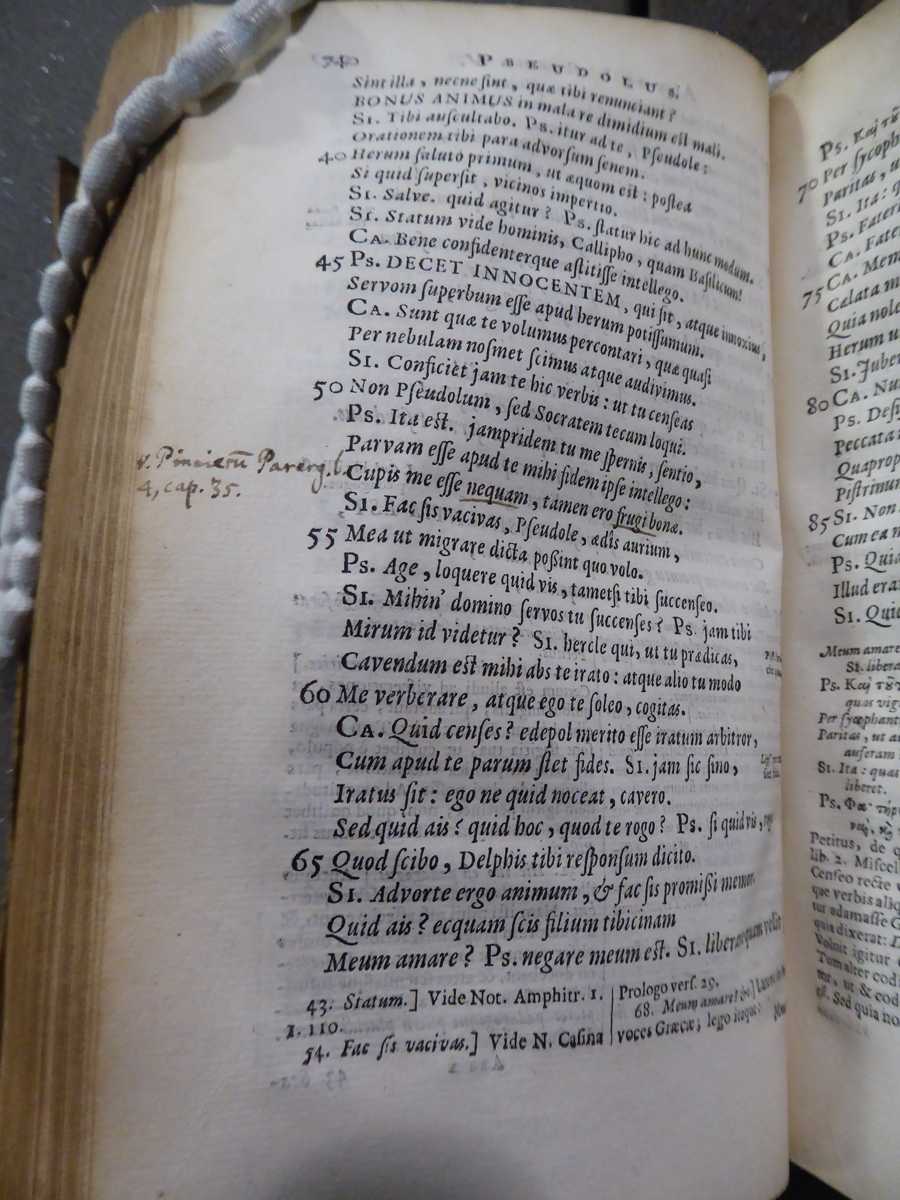 740 PSEUDOLUS.
Sint illa, necne sint, quæ tibi renunciant?
BONUS ANIMUS in mala re dimidium est mali.
SI. Tibi auscultabo. PS. itur ad te, Pseudole:
Orationem tibi para advorsum senem.
40 Herum saluto primum, ut æquom est: postea
Si quid supersit, vicinos impertio.
SI. Salve. quid agitur? PS. statur hic ad hunc modum.
SI. Statum vide hominis, Callipho, quam Basilicum!
CA. Bene confidenterque astitisse intellego.
45 PS. DECET INNOCENTEM, qui sit, atque innoxius,
Servom superbum esse apud herum potissumum.
CA. Sunt quæ te volumus percontari, quæ quasi
Per nebulam nosmet scimus atque audivimus.
SI. Conficiet jam te hic verbis: ut tu censeas
50 Non Pseudolum, sed Socratem tecum loqui.
PS. Ita est. jampridem tu me spernis, sentio,
Parvam esse apud te mihi fidem ipse intellego:
Cupis me esse nequam, tamen ero frugi bonæ.
v. Pincierū Parerg. l.
4, cap. 35.
SI. Fac sis vacivas, Pseudole, ædis aurium,
55 Mea ut migrare dicta possint quo volo.
PS. Age, loquere quid vis, tametsi tibi succenseo.
SI. Mihin' domino servos tu succenses? PS. jam tibi
Mirum id videtur? SI. hercle qui, ut tu prædicas,
Cavendum est mihi abs te irato: atque alio tu modo
60 Me verberare, atque ego te soleo, cogitas.
CA. Quid censes? edepol merito esse iratum arbitror,
Cum apud te parum stet fides. SI. jam sic sino,
Iratus sit: ego ne quid noceat, cavero.
Sed quid ais? quid hoc, quod te rogo? PS. si quid vis,
65 Quod scibo, Delphis tibi responsum dicito.
SI. Advorte ergo animum, & fac sis promissi memor.
Quid ais? ecquam scis filium tibicinam
Meum amare? PS. negare meum est. SI. liberare quam velit
43. Statum.] Vide Not. Amphitr. 1.
1. 110.
54. Fac sis vacivas.] Vide N. Casina
Prologo vers. 29.
68. Meum amare?
voces Græcæ; lego itaque:
PS. Καὶ τοῦ
70 Per sycoph
Paritas, u
SI. Ita: q
PS. Fateri
CA. Fate
CA. Mem
75 Celata m
Quia nole
Herum u
SI. Jube
80 CA. Nu
PS. Desi
Peccata
Quaprop
Pistrinum
85 SI. Non
Cum ea m
PS. Quia
Illud era
SI. Quid
Meum amare
SI. libera
PS. Καὶ τοῦ
quas vig
Per sycophant
Paritas, ut a
auferam
SI. Ita: quas
liberet.
Petitus, de q
lib. 2. Miscel
Censeo recte
que verbis aliq
tur adamasse G
quia dixerat:
Voluit igitur
Tum alter codi
tur, ut & cod
est. Sed quia no